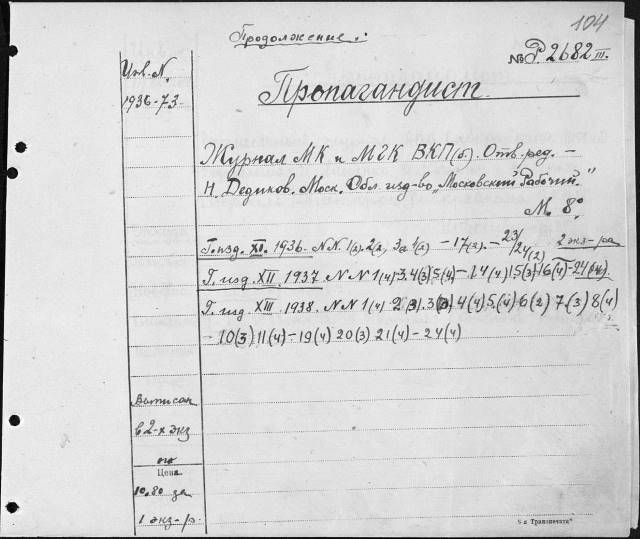 104
Продолжение:
№ Р. 2682 III.
Инв. N.
1936-73
Пропагандист.
Журнал МК и МГК ВКП(б). Отв. ред. –
Н. Дедиков. Моск. Обл. изд-во „Московский Рабочий."
М. 8°
Г. изд. XI. 1936. N.N. 1(3). 2(2), 3а 1(2) – 17(2). – 23/24(2) 2 экз-ра
Г. изд. XII 1937 N N 1(4)-3. 4(3) 5(4) – 14(4) 15(3) 16(4) – 24(4).
Г. изд. XIII 1938. N N 1(4) 2(3). 3(3) 4(4) 5(4) 6(2) 7(3) 8(4)
– 10(3) 11(4) – 19(4) 20(3) 21(4) – 24(4)
Выписан
в 2-х экз
Цена
10.80 за
1 экз-р.
5-я Транспечати"